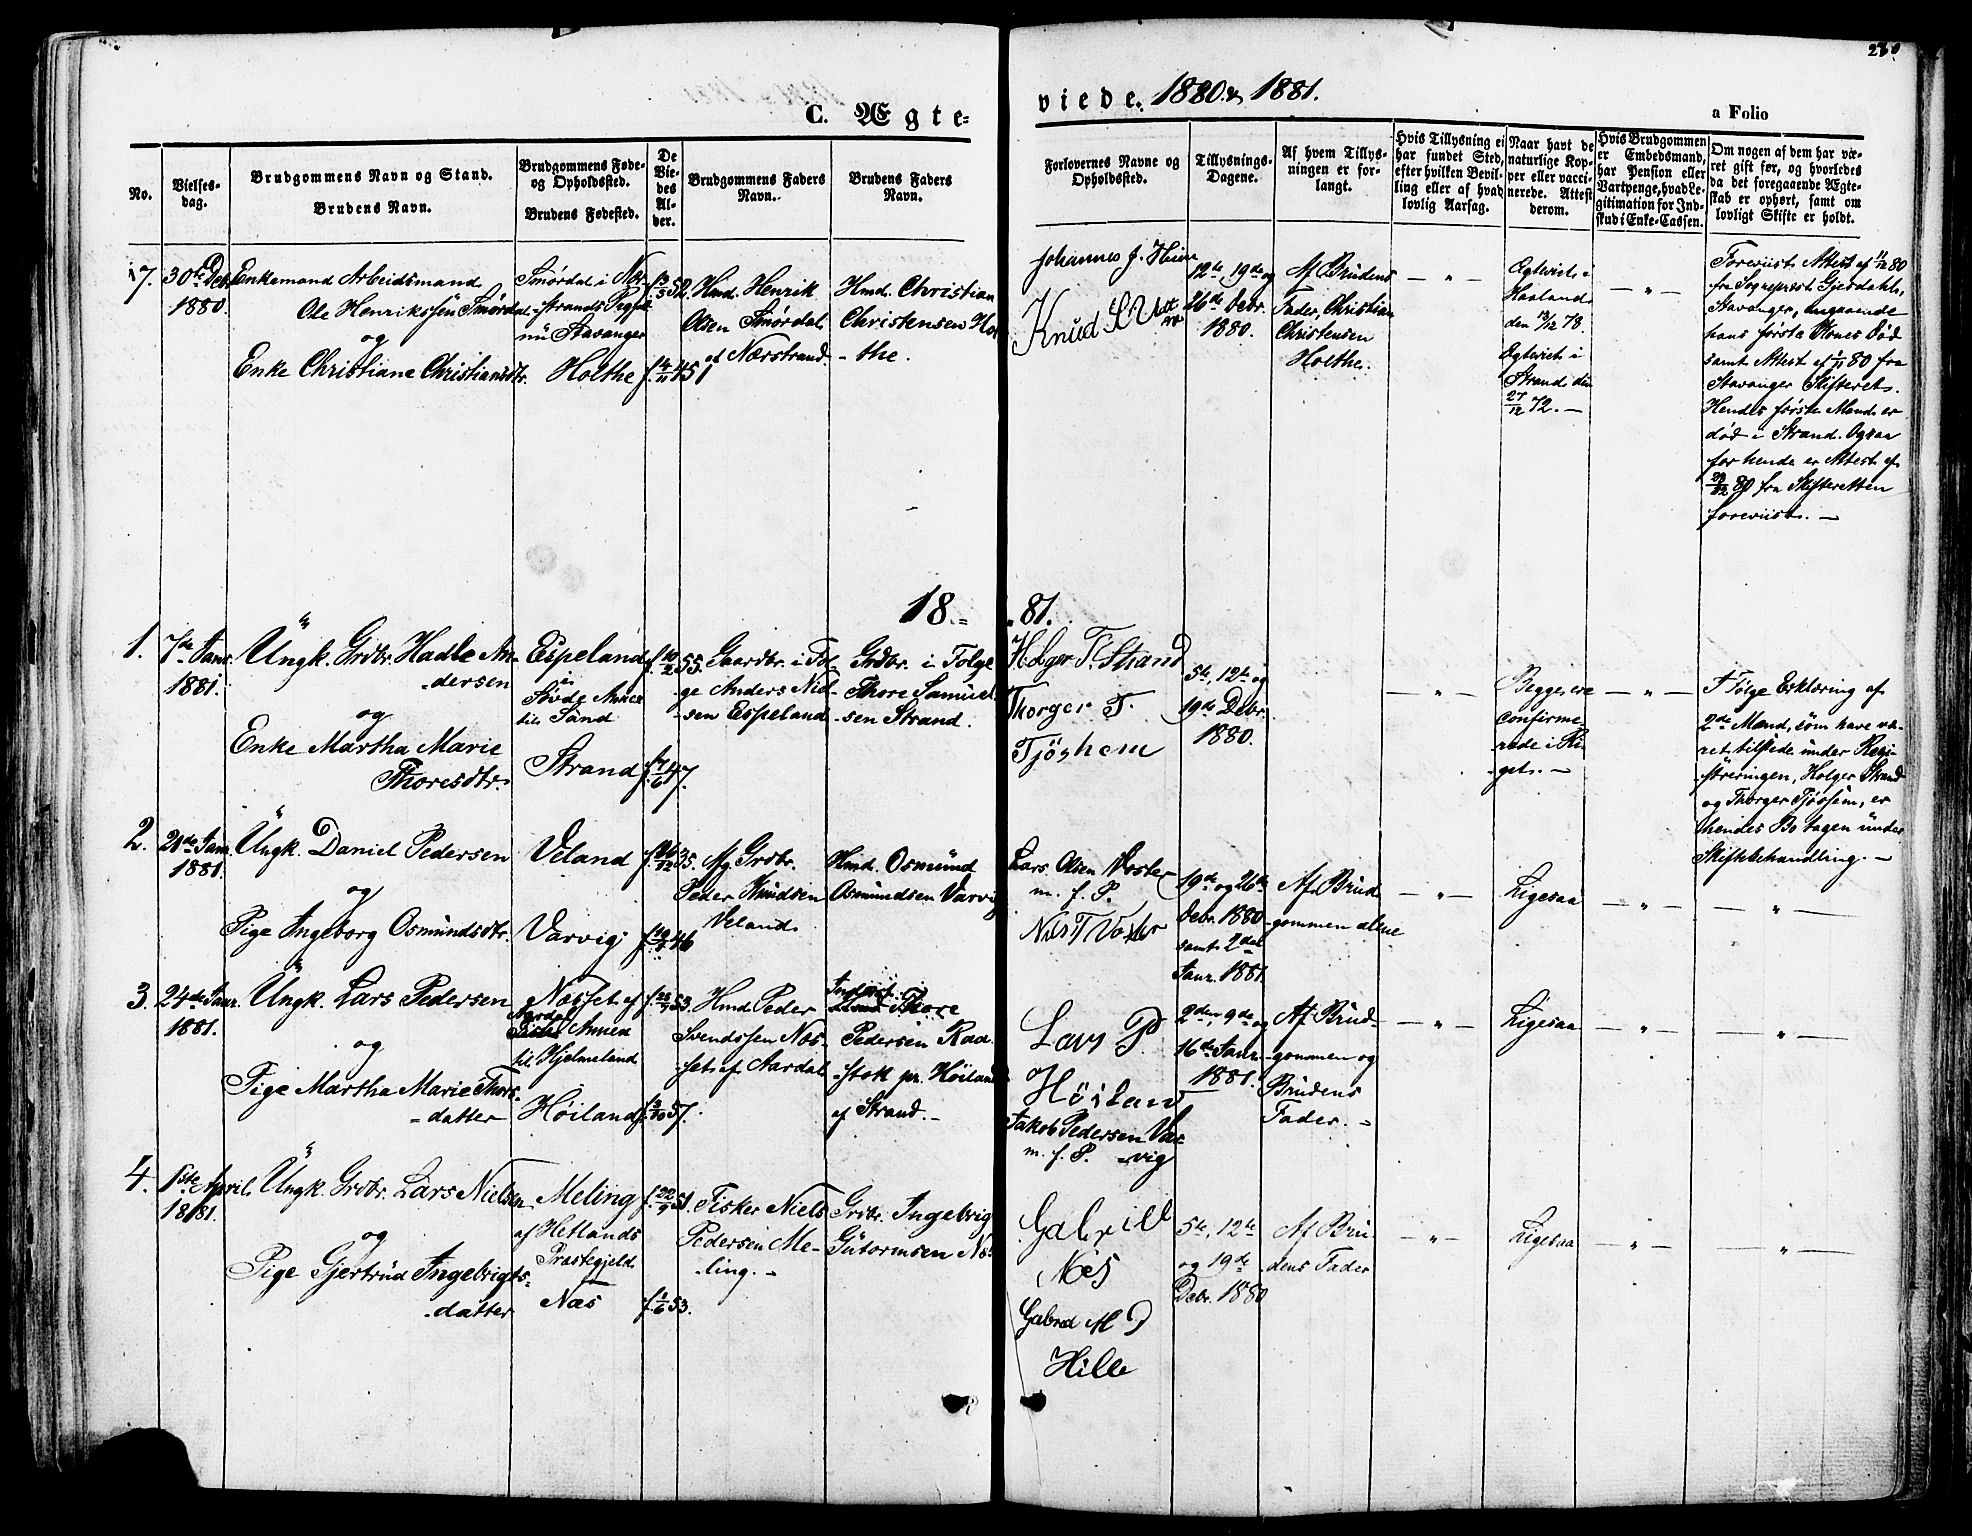 280
C. Ægte=
viede. 1880 & 1881.
a Folio
No.
Vielses-
dag.
Brudgommens Navn og Stand.
Brudens Navn.
Brudgommens Føde-
og Opholdssted.
Brudens Fødested.
De
Vie-
des
Al-
der.
Brudgommens Faders
Navn.
Brudens Faders
Navn.
Forlovernes Navne og
Opholdssted.
Tillysnings-
Dagene.
Af hvem Tillys-
ningen er for-
langt.
Hvis Tillysning ei
har fundet Sted,
efter hvilken Bevil-
ling eller af hvad
lovlig Aarsag.
Naar havt de
naturlige Kop-
per eller vacci-
nerede. Attest
derom.
Hvis Brudgommen
er Embedsmand,
har Pension eller
Vartpenge, hvad Le-
gitimation for Ind-
skud i Enke-Cassen.
Om nogen af dem har væ-
ret gift før, og hvorledes
da det foregaaende Ægte-
skab er ophørt, samt om
lovligt Skifte er holdt.
17.
30te Dec.
1880.
Enkemand Arbeidsmand
Ole Henrikssen Smørdal
og
Enke Christiane Christiansdtr.
Smørdal i Nær-
-strands Pregjd.
nu Stavanger
Holthe
Hmd. Henrik
Olsen Smørdal
af Nærstrand.
Hmd. Christian
Christensen Hol-
-the.
Johannes J. Heien
Knud
12te, 19de og
26de Debr.
1880.
Af Brudens
Fader, Christian
Christensen
Holthe.
Egteviet i
Haaland
den 13/12 78.
Egteviet i
Strand den
27/12 72. –
Foreviist Attest af 11/12 80
fra Sognepræst Gjesdahl,
Stavanger, angaaende
hans første Kones Død
samt Attest af 1/11 80 fra
Stavanger Skifteret.
Hendes første Mand er
død i Strand. Ogsaa
for hende er Attest af
80 fra Skifteretten
foreviist. –
18 81.
1.
7de Janr.
1881.
Ungk. Grdbr. Hadle An-
-dersen
og
Enke Martha Marie
Thoresdtr.
Espeland
i
Søvde Annex
til Sand
Strand
f. 10/2 55.
f. 7/6 47.
Gaardbr. i Fol-
ge Anders Niel-
-sen Espeland
Grdbr. i Følge
Thore Samuel-
-sen Strand.
Holger T. Strand
Thorger T.
Tjøshem
5te, 12te og
19de Debr.
1880.
Begge ere
confirme-
rede i Ri-
-get. –
I Følge Erklæring af
2de Mænd, som have væ-
ret tilstede under Regi-
-streringen, Holger Strand
og Thorger Tjøssem, er
hendes Bo tagen under
Skiftebehandling. –
2.
21de Janr.
1881.
Ungk. Daniel Pedersen
og
Pige Ingeborg Osmundsdtr.
Veland
Varvig
Afg. Grdbr.
Peder Knudsen
Veland
Hmd. Osmund
Osmundsen Varvig
Lars Olsen Voster
m. f. P.
Nils T Voster
19de og 26de
Debr. 1880
samt 2den
Janr. 1881.
Af Brud-
gommen alene
Ligesaa
3.
24de Janr.
1881.
Ungk. Lars Pedersen
og
Pige Martha Marie Thors-
-datter
Næsset af
Aardal
Annex
til Hjelmeland
Høiland
f. 3/10 57.
Hmd. Peder
Svendssen Næs-
-set af Aardal
Thore
Pedersen Raa-
-stok pr. Høiland
af Strand. –
Lars P
Høiland
Jakob Pedersen Var-
m. f. P. -vig
2den, 9de og
16de Janr.
1881.
Af Brud-
-gommen og
Brudens
Fader. –
Ligesaa
4.
1ste April.
1881.
Ungk. Grdbr. Lars Nielsen
og
Pige Gjertrud Ingebrigts-
-datter
Meling
af Hetlands
Præstegjeld
Næs
f. 22/9 51.
f. 1/6 53.
Fisker Niels
Pedersen Me-
-ling. –
Grdbr. Ingebrig
Gutormsen Næs
Gabriel
Nes
Gabriel M P
Hille
5te, 12te
og 19de
Debr. 1880
Af Bru-
dens Fader
Ligesaa